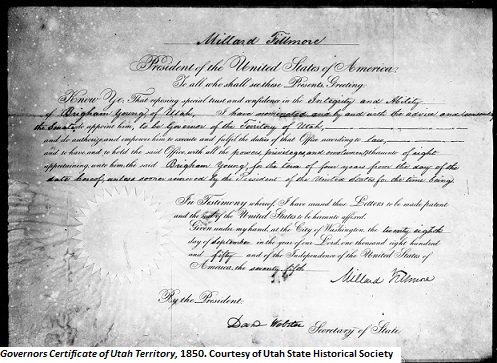 Millard Fillmore
President of the United States of America,
To all who shall see these Presents, Greeting
Know Ye, That reposing special trust and confidence in the Integrity and Ability
of Brigham Young, of Utah, I have nominated and by and with the advice and consent of
the Senate do appoint him, to be Governor of the Territory of Utah,
and do authorize and empower him to execute and fulfil the duties of that Office according to law,
and to have and to hold the said Office, with all the powers, privileges, and emoluments thereunto of right
appertaining unto him the said Brigham Young, for the term of four years from the day of the
date hereof, unless sooner removed by the President of the United States for the time being.
In Testimony whereof, I have caused these Letters to be made patent
and the seal of the United States to be hereunto affixed.
Given under my hand, at the City of Washington, the twenty eighth
day of September in the year of our Lord, one thousand eight hundred
and fifty and of the Independence of the United States of
America, the seventy fifth.
Millard Fillmore
By the President:
Danl Webster Secretary of State.
Governors Certificate of Utah Territory, 1850. Courtesy of Utah State Historical Society